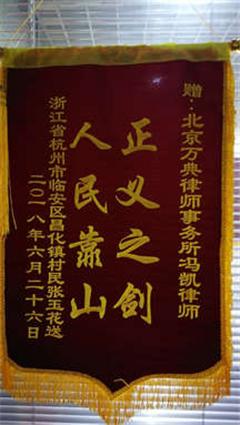 赠：北京万典律师事务所冯凯律师
正义之剑
人民靠山
浙江省杭州市临安区昌化镇村民张玉花送
二〇一八年六月二十六日